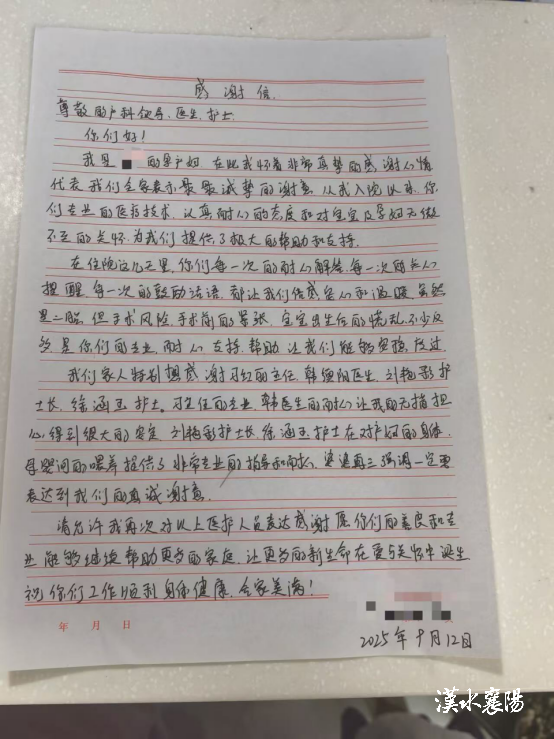 感谢信
尊敬的产科领导、医生、护士
你们好!
我是 的孕产妇 在此我怀着非常真挚的感谢心情
代表我们全家表示最最诚挚的谢意 从我入院以来 你
们专业的医疗技术、认真耐心的态度和对宝宝及孕妇无微
不至的关怀 为我们提供了极大的帮助和支持
在住院这几天里 你们每一次的耐心解答 每一次的关心
提醒 每一次的鼓励话语 都让我们倍感安心和温暖 虽然
是二胎 但手术风险、手术前的紧张 宝宝出生后的慌乱 不少反
是你们的专业、耐心 支持 帮助 让我们能够安稳度过
我们家人特别想感谢 主任、韩 医生、刘艳彩护
士长、徐涵玉护士 主任的专业、韩医生的耐心让我的无措担
心得到很大的安定 刘艳彩护士长、徐涵玉护士在对产妇的身体、
母婴间的喂养提供了非常专业的指导和 婆婆再三强调一定要
表达到我们的真诚谢意
请允许我再次对以上医护人员表达感谢 愿你们的善良和专
业能够继续帮助更多的家庭 让更多的新生命在爱与关怀中诞生
祝你们工作顺利 身体健康、合家美满!
年 月 日
2025年9月12日
漢水襄陽